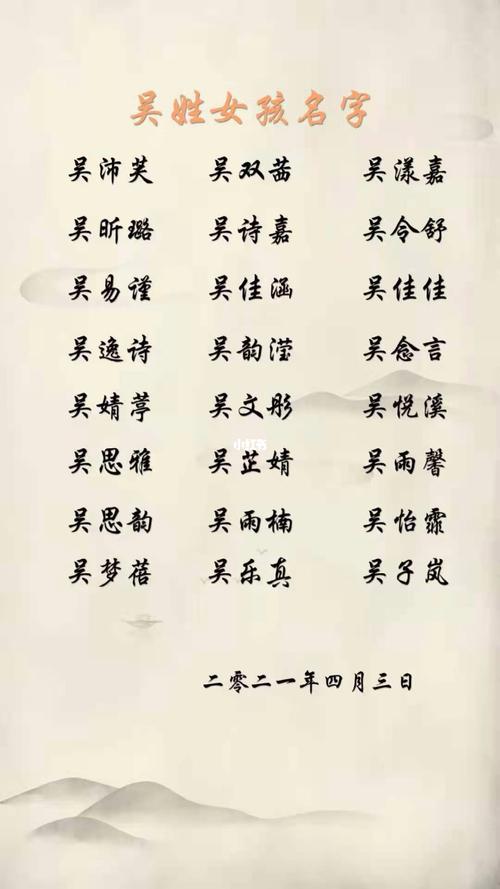 吴姓女孩名字
吴沛芙 吴双茜 吴漾嘉
吴昕璐 吴诗嘉 吴令舒
吴易谨 吴佳涵 吴佳佳
吴逸诗 吴韵滢 吴念言
吴婧葶 吴文彤 吴悦溪
小红书
吴思雅 吴芷婧 吴雨馨
吴思韵 吴雨楠 吴怡霏
吴梦蓓 吴乐真 吴子岚
二零二一年四月三日